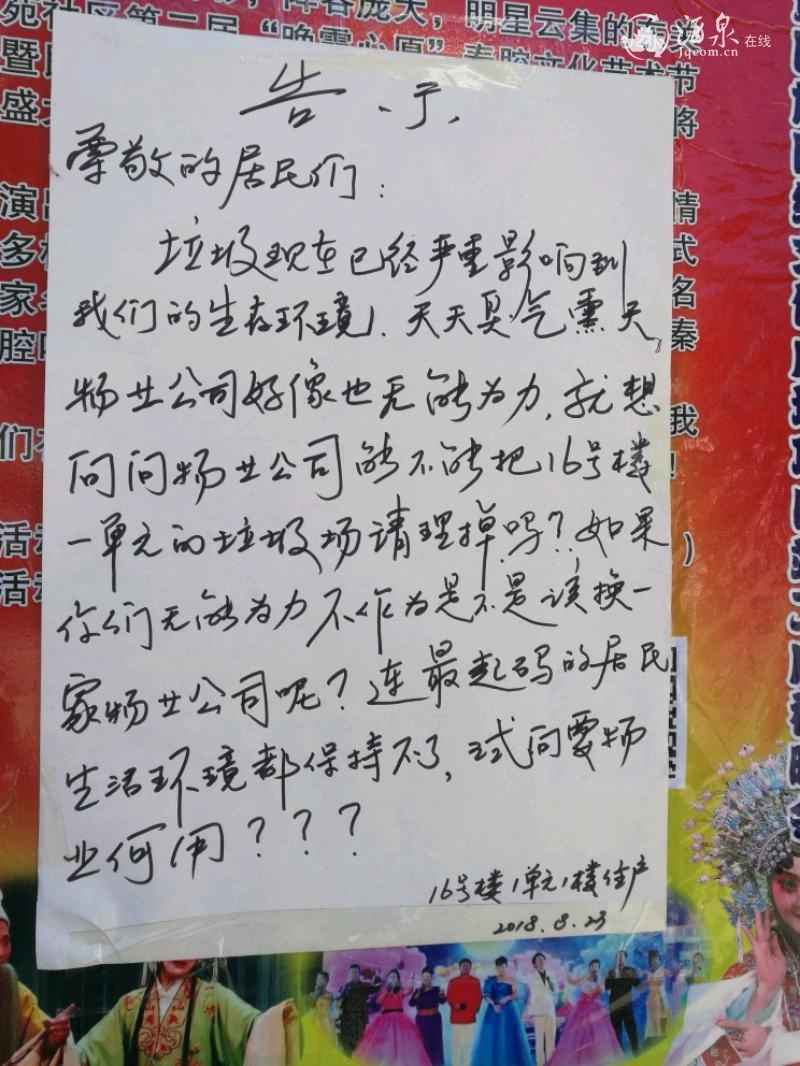 苑社区第二届“晚霞心愿”秦腔文化艺术节
酒泉在线
jqcom.cn
告示
尊敬的居民们：
垃圾现在已经严重影响到
我们的生存环境、天天臭气熏天，
物业公司好像也无能为力，就想
问问物业公司能不能把16号楼
一单元的垃圾场清理掉吗？如果
你们无能为力不作为是不是该换一
家物业公司呢？连最起码的居民
生活环境都保持不了，试问要物
业何用？？？
16号楼1单元1楼住户
2018.8.23
演出
情
多
式
家
名
腔
秦
们
我
！
活
）
活